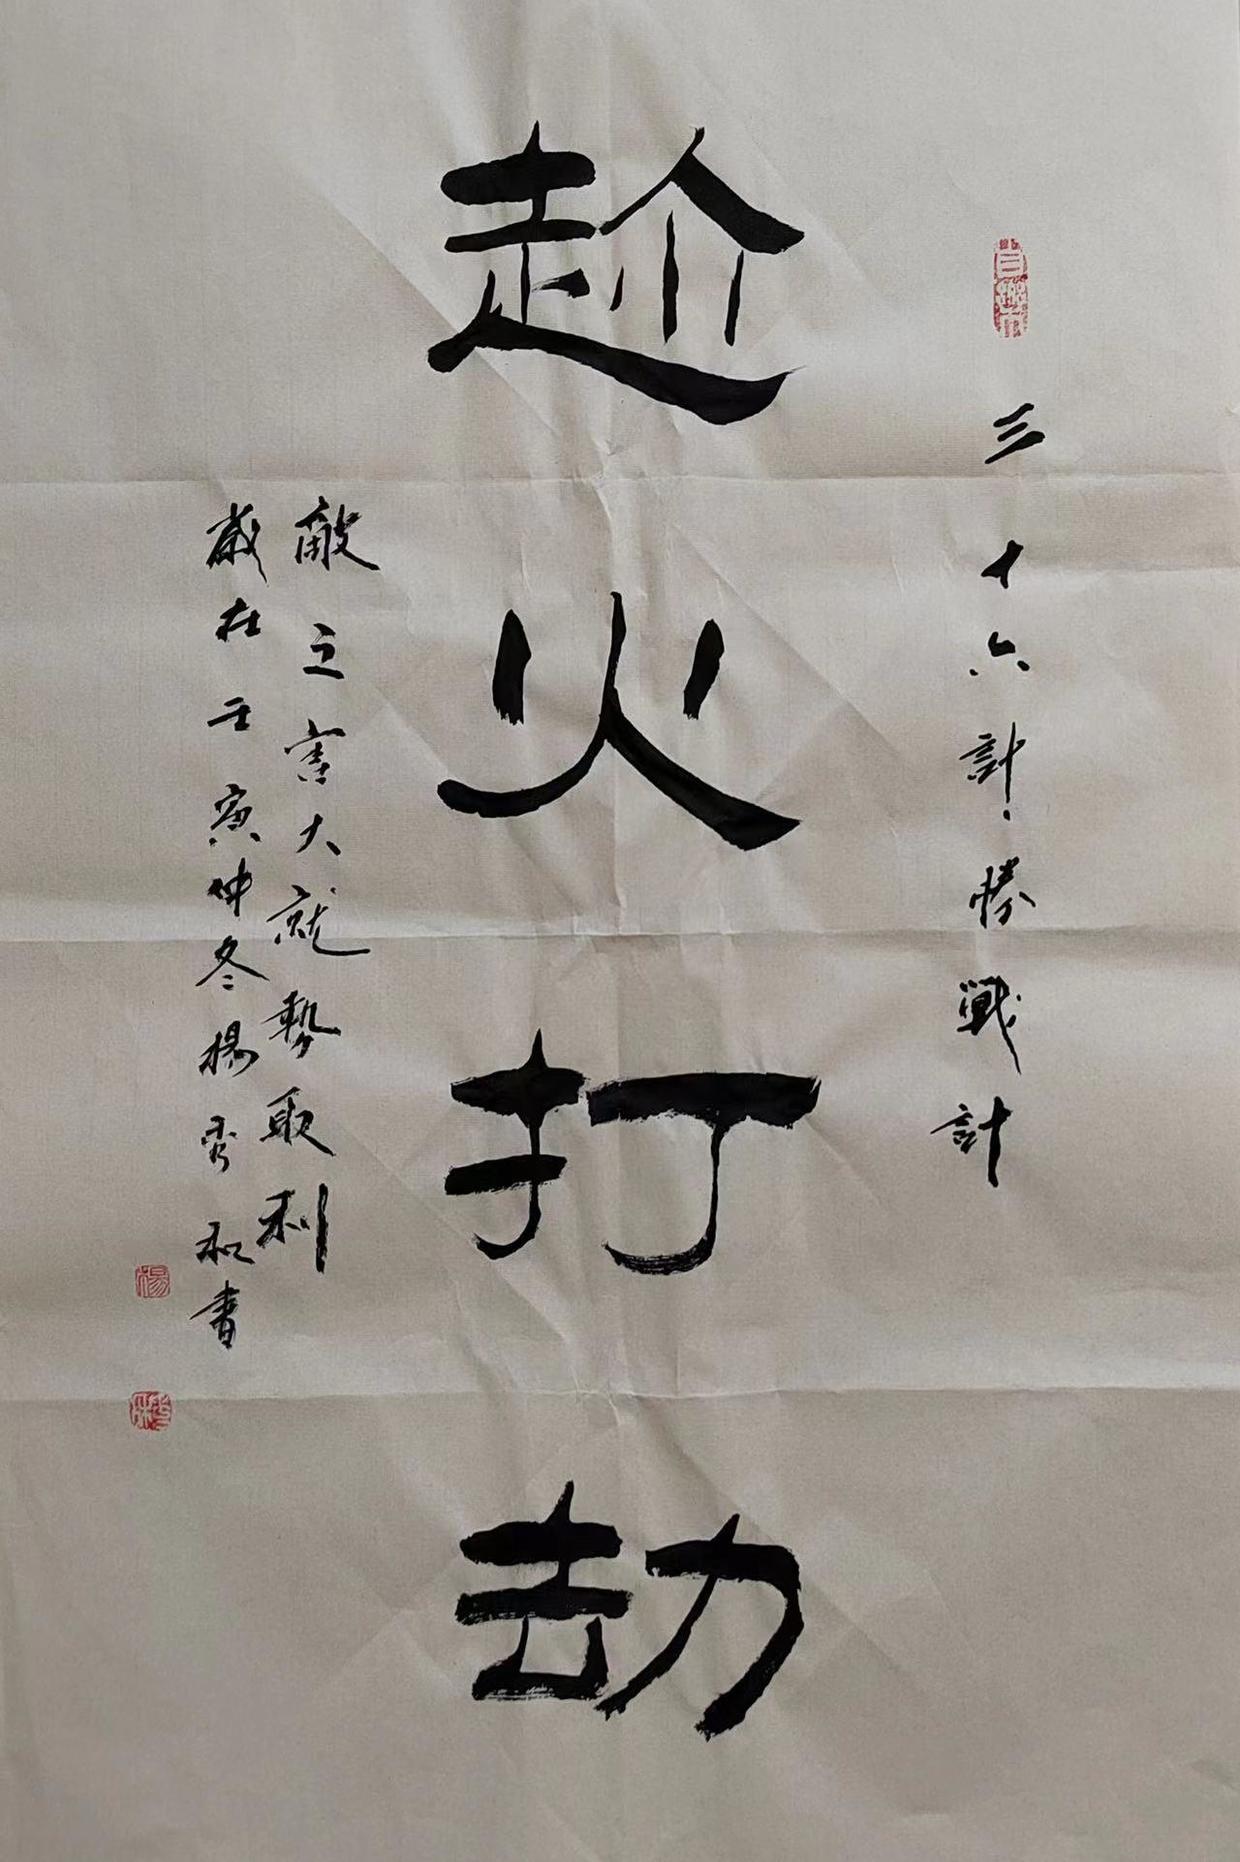 三十六計·勝戰計
趁火打劫
敵之害大就勢取利
歲在壬寅仲冬楊秀和書
楊